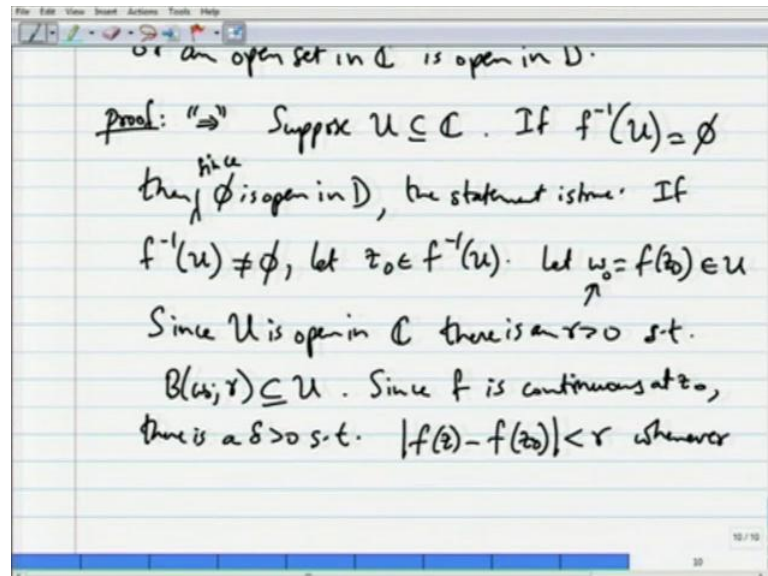 File Edit View Insert Actions Tools Help
or an open set in ℂ is open in D.
proof: "⇒" Suppose U ⊆ ℂ. If f⁻¹(U) = ∅
since
then ∅ is open in D, the statement is true. If
f⁻¹(U) ≠ ∅, let z₀ ∈ f⁻¹(U). Let w₀ = f(z₀) ∈ U
Since U is open in ℂ there is an r>0 s.t.
B(w₀; r) ⊆ U. Since f is continuous at z₀,
there is a δ>0 s.t. |f(z) − f(z₀)| < r whenever
10 / 10
10